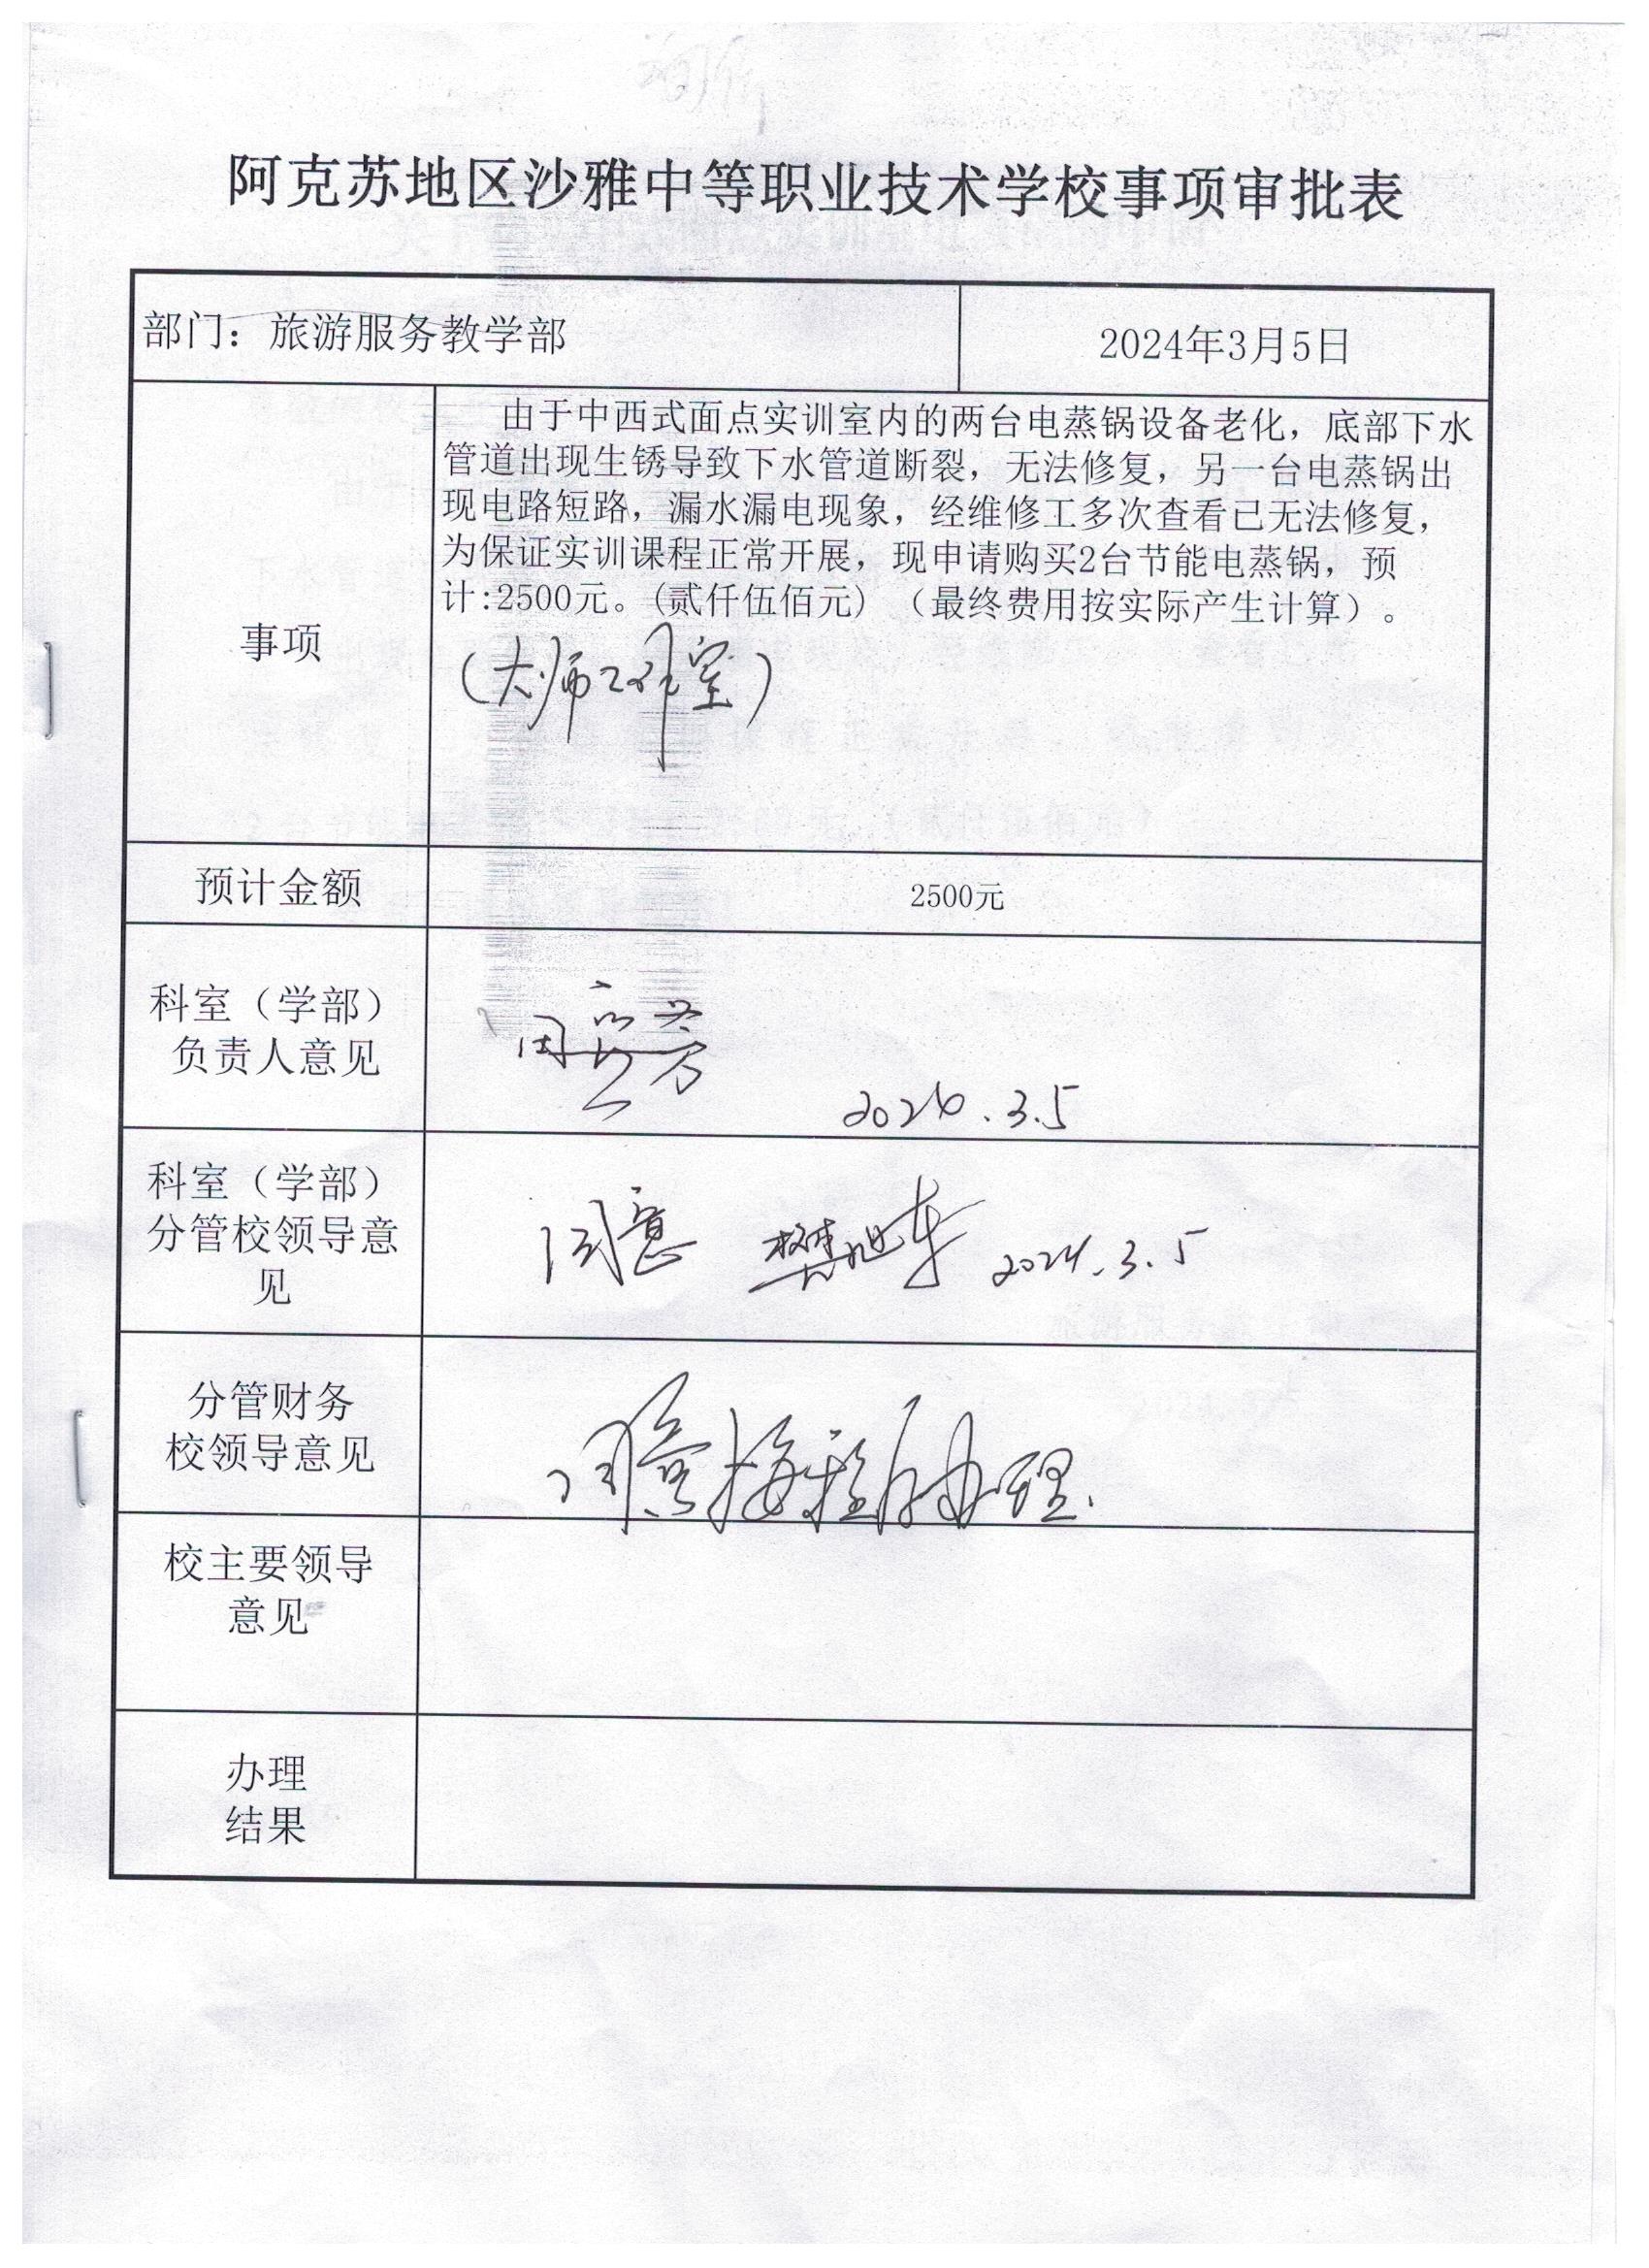 阿克苏地区沙雅中等职业技术学校事项审批表
部门：旅游服务教学部
2024年3月5日
事项
由于中西式面点实训室内的两台电蒸锅设备老化，底部下水
管道出现生锈导致下水管道断裂，无法修复，另一台电蒸锅出
现电路短路，漏水漏电现象，经维修工多次查看已无法修复，
为保证实训课程正常开展，现申请购买2台节能电蒸锅，预
计:2500元。(贰仟伍佰元）（最终费用按实际产生计算）。
（大师工作室）
预计金额
2500元
科室（学部）
负责人意见
2024.3.5
科室（学部）
分管校领导意
见
同意 樊旭东 2024.3.5
分管财务
校领导意见
同意按程序办理.
校主要领导
意见
办理
结果